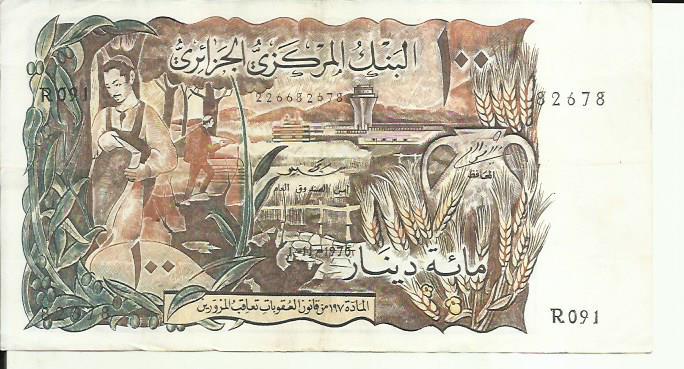 البنك المركزي الجزائري ١٠٠
R 091
226682678
82678
المحافظ
أمين الصندوق العام
1-11-1970
مائة دينار
١٠٠
المادة ١٩٧ من قانون العقوبات تعاقب المزورين
R 091